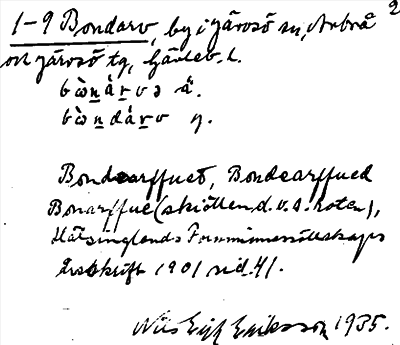 2
1-9 Bondarv, by i Järvsö sn, Arbrå
och Järvsö tg, Gävleb. l.
bòn̲árvɘ ä.
bòn̲dárv y.
Bondearffuet, Bondearffued
Bonarffue (skiötten d.v.s. roten),
Hälsinglands Fornminnessällskaps
Årsskrift 1901 sid. 41.
Nils Erik Eriksson 1935.